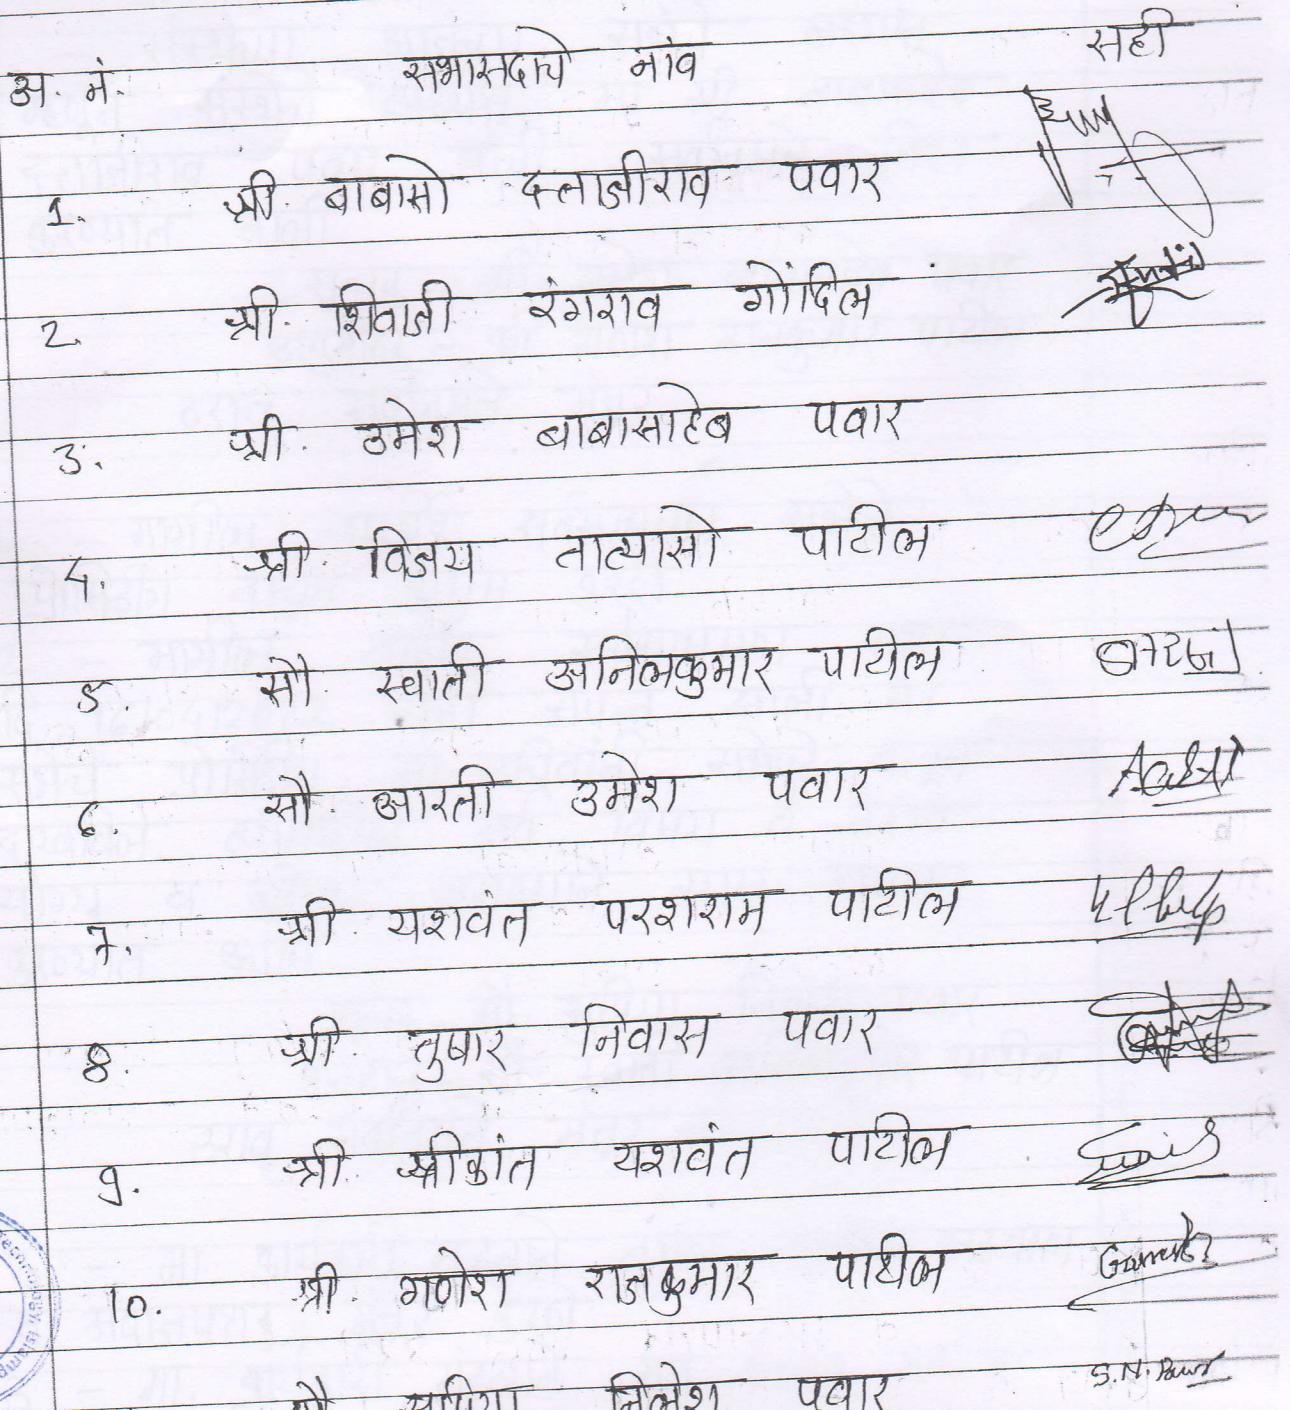 अ. नं. सभासदाचे नांव सही
1. श्री. बाबासो दत्ताजीराव पवार
2. श्री. शिवाजी रंगराव गोंदिल
3. श्री. उमेश बाबासाहेब पवार
4. श्री. विजय तात्यासो पाटील
5. सौ. स्वाती अनिलकुमार पाटील
6. सौ. आरती उमेश पवार
7. श्री. यशवंत परशराम पाटील
8. श्री. तुषार निवास पवार
9. श्री. श्रीकांत यशवंत पाटील
10. श्री. गणेश राजकुमार पाटील Ganesh
निलेश पवार S.N. Pawar